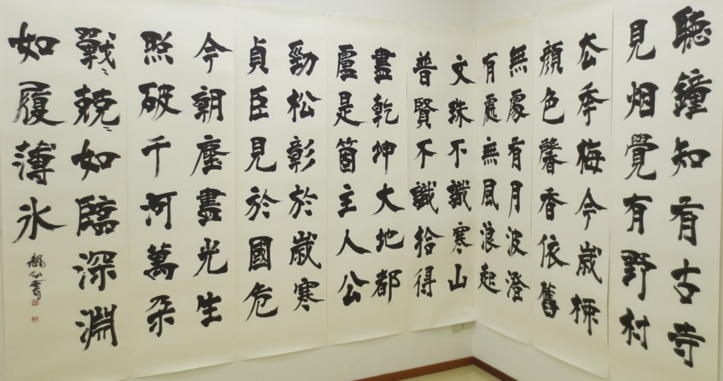 聽鐘知有古寺
見烟覺有野村
厺秊梅今歲柳
顏色馨香依舊
無處有月波澄
有處無風浪起
文殊不識寒山
普賢不識拾得
盡乾坤大地都
盧是箇主人公
勁松彰於歲寒
貞臣見於國危
今朝塵盡光生
照破千河萬朵
戰〻兢〻如臨深淵
如履薄氷